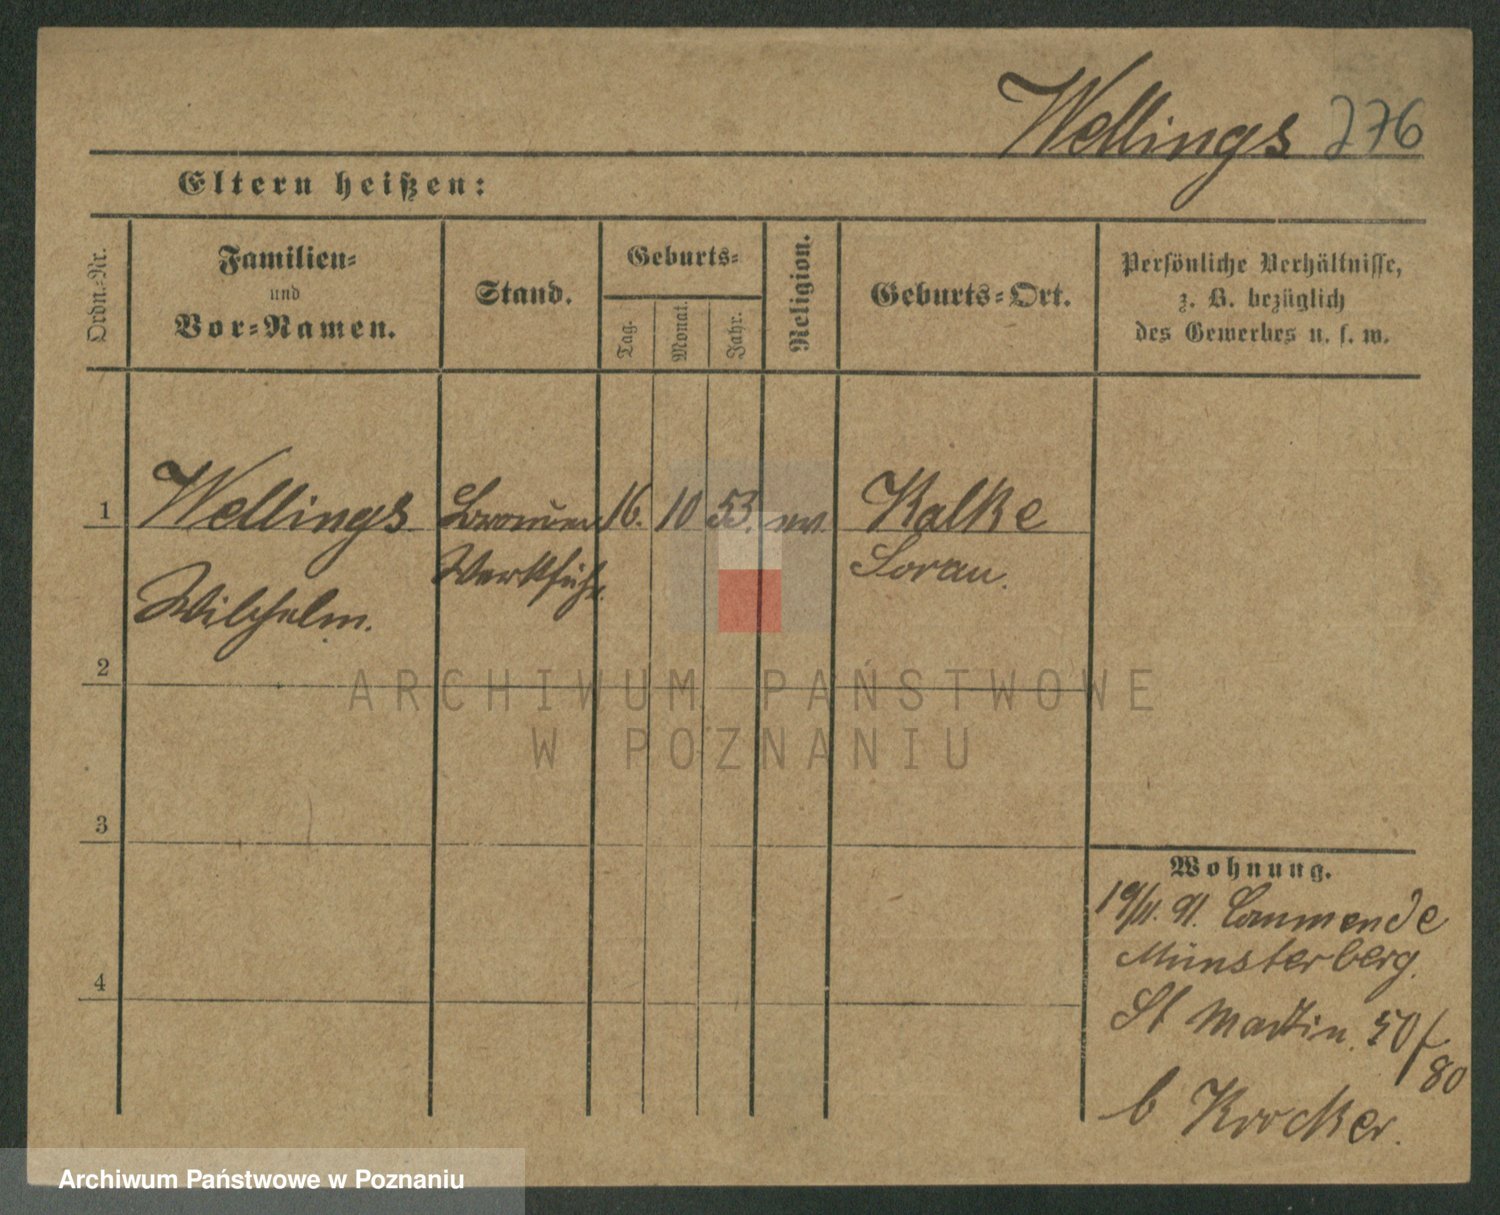 Wellings 276
Eltern heißen:
Ordn.-Nr.
Familien-
und
Vor-Namen.
Stand.
Geburts-
Tag.
Monat.
Jahr.
Religion.
Geburts-Ort.
Persönliche Verhältnisse,
z. B. bezüglich
des Gewerbes u. s. w.
1 Wellings 16. 10 53. ev. Kalke
Werkführ. Sorau.
Wilhelm.
2
ARCHIWUM PAŃSTWOWE
W POZNANIU
3
Wohnung.
19/11. 91. Commende
Münsterberg.
4
St Martin. 50/80
b Krocker.
Archiwum Państwowe w Poznaniu